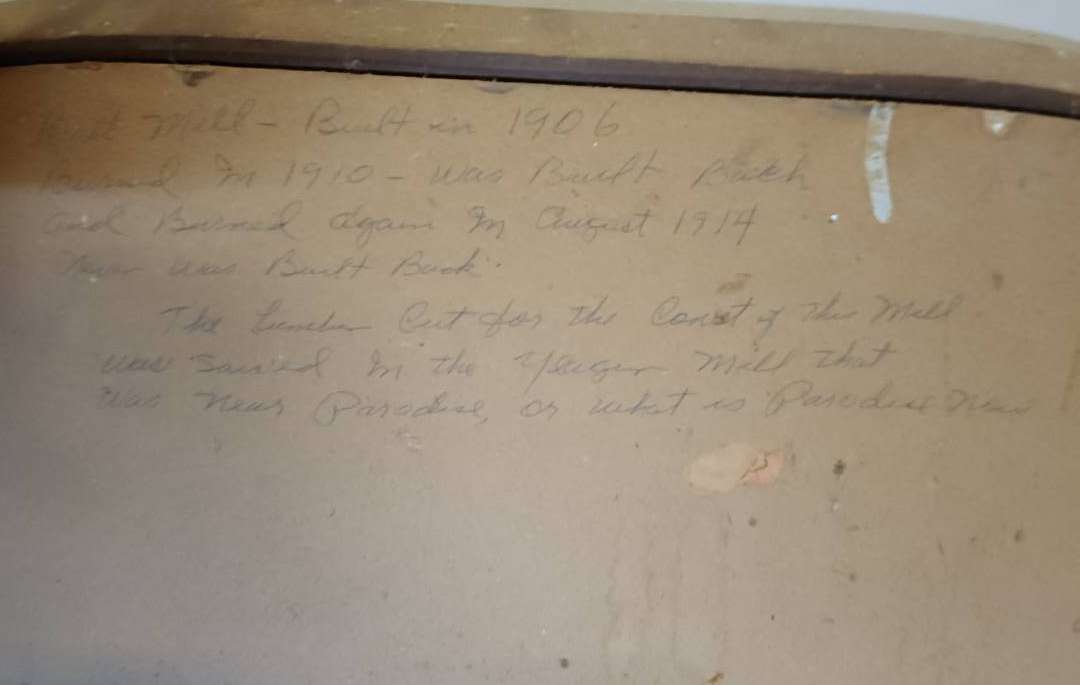 Mill - Built in 1906
Burned In 1910 - was Built Back
and Burned Again In August 1914
Never was Built Back.
The Lumber Cut for the Const of this Mill
was Sawed In the Yeager Mill that
was near Paradise, or what is Paradise Now